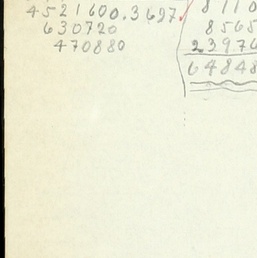 4521600.3697
630720
470880
8110
8565
23976
64848